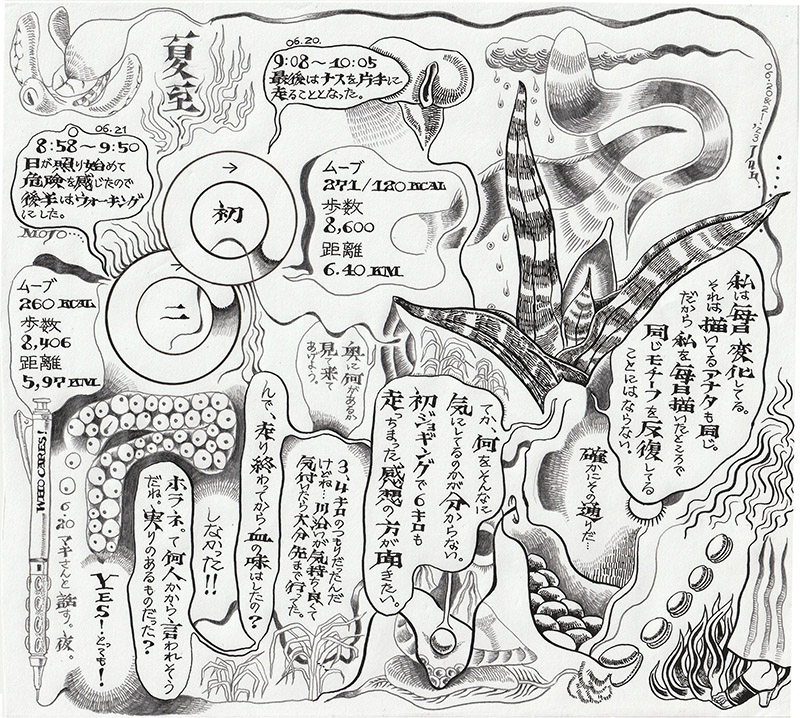 夏至
06.20.
9:08〜10:05
最後はナスを片手に
走ることとなった。
06.21
8:58〜9:50
日が照り始めて
危険を感じたので
後半はウォーキング
にした。
MOTO
初
二
ムーブ
271/120KCAL
歩数
8,600
距離
6.40KM
ムーブ
260KCAL
歩数
8,406
距離
5,97KM
06.20&21.'23
私は毎日変化してる。
それは描いてるアナタも同じ。
だから私を毎日描いたところで
同じモチーフを反復してる
ことにはならない。
確かにその通りだ…
奥に何があるか
見て来て
あげよう。
てか、何をそんなに
気にしてるのかが分からない。
初ジョギングで6キロも
走っちまった感想の方が聞きたい。
3、4キロのつもりだったんだ
けどね…川沿いが気持ち良くて
気付いたら大分先まで行ってた。
んで、走り終わってから血の味はしたの？
しなかった!!
ホラネ。って何人かから言われそう
だね。実りのあるものだった？
YES!とっても!
WHO CARES!
6.20 マキさんと話す。夜。